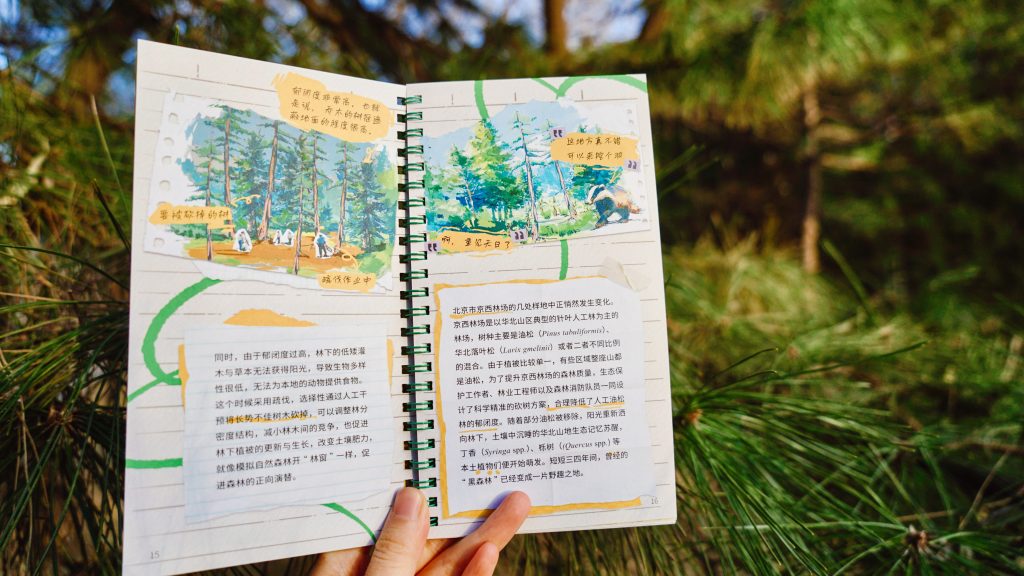 郁闭度非常高，也就
是说，乔木的树冠遮
蔽地面的程度很高。
要被砍掉的树
疏伐作业中
同时，由于郁闭度过高，林下的低矮灌
木与草本无法获得阳光，导致生物多样
性很低，无法为本地的动物提供食物。
这个时候采用疏伐，选择性通过人工干
预将长势不佳树木砍掉，可以调整林分
密度结构，减小林木间的竞争，也促进
林下植被的更新与生长，改变土壤肥力，
就像模拟自然森林开“林窗”一样，促
进森林的正向演替。
15
这地方真不错
可以来挖个洞
啊，重见天日了
北京市京西林场的几处样地中正悄然发生变化。
京西林场是以华北山区典型的针叶人工林为主的
林场，树种主要是油松（Pinus tabuliformis）、
华北落叶松（Larix gmelinii）或者二者不同比例
的混合。由于植被比较单一，有些区域整座山都
是油松，为了提升京西林场的森林质量，生态保
护工作者、林业工程师以及森林消防队员一同设
计了科学精准的砍树方案，合理降低了人工油松
林的郁闭度。随着部分油松被移除，阳光重新洒
向林下，土壤中沉睡的华北山地生态记忆苏醒，
丁香（Syringa spp.）、栎树（(Quercus spp.）等
本土植物们便开始萌发。短短三四年间，曾经的
“黑森林”已经变成一片野趣之地。
16